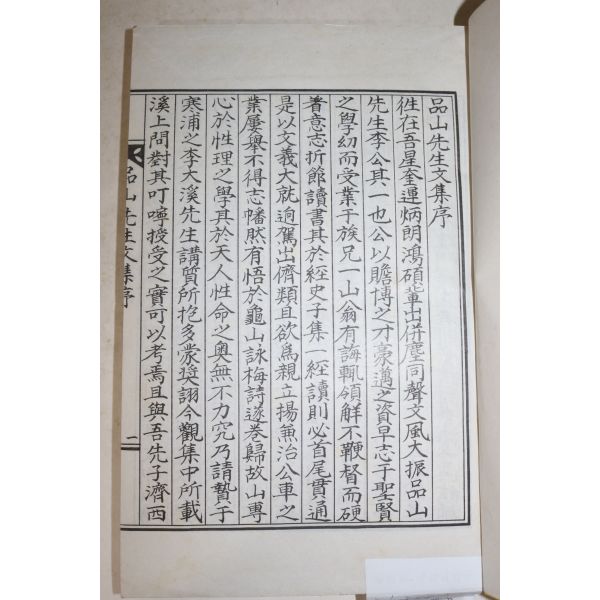 品山先生文集序
徃在吾星奎運炳朗鴻碩輩出倂塵同聲文風大振品山
先生李公其一也公以贍博之才豪邁之資早志于聖賢
之學幼而受業于族兄一山翁有誨輒領解不鞭督而硬
着意志折節讀書其於經史子集一經讀則必首尾貫通
是以文義大就逈駕出儕類且欲爲親立揚兼治公車之
業屢擧不得志幡然有悟於龜山詠梅詩遂卷歸故山專
心於性理之學其於天人性命之奧無不力究乃請贄于
寒浦之李大溪先生講質所抱多蒙奬詡今觀集中所載
溪上問對其叮嚀授受之實可以考焉且與吾先子濟西
品山先生文集序
一